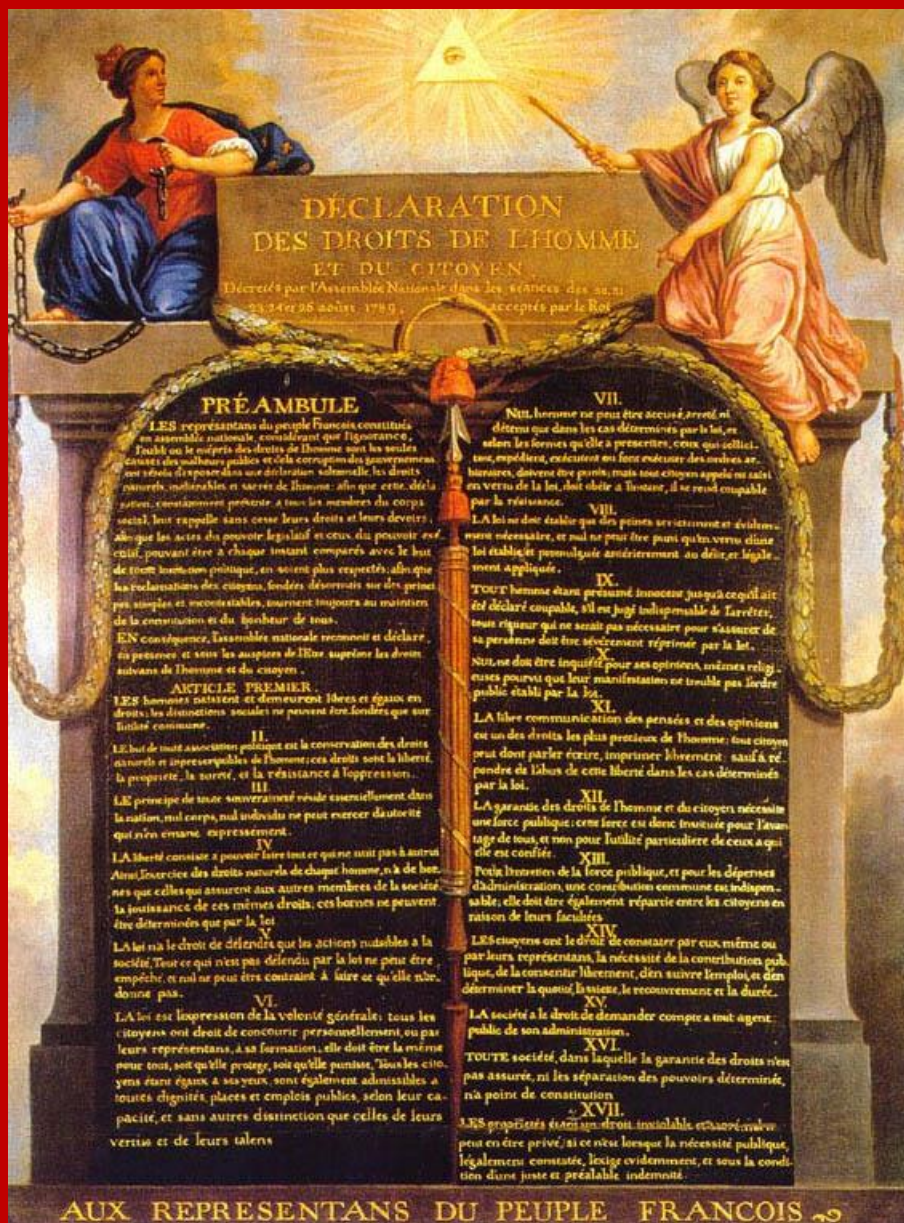 DÉCLARATION
DES DROITS DE L'HOMME
ET DU CITOYEN,
Décretés par l'Assemblée Nationale dans les séances des 20, 21
23, 24 et 26 août 1789, acceptés par le Roi
PRÉAMBULE
LES représentans du peuple François constitués
en assemblée nationale, considérant que l'ignorance,
l'oubli ou le mépris des droits de l'homme sont les seules
causes des malheurs publics et de la corruption des gouvernemens
ont résolu d'exposer dans une déclaration solemnelle, les droits
naturels, inaliénables et sacrés de l'homme: afin que cette décla
ration, constamment présente a tous les membres du corps
social, leur rappelle sans cesse leurs droits et leurs devoirs,
afin que les actes du pouvoir legislatif et ceux du pouvoir ex
cutif, pouvant être à chaque instant comparés avec le but
de toute institution politique, en soient plus respectés; afin que
les reclamations des citoyens, fondées désormais sur des princi
pes simples et incontestables, tournent toujours au maintien
de la constitution et du bonheur de tous.
EN conséquence, l'assemblée nationale reconnoit et déclare,
en presence et sous les auspices de l'Etre suprême les droits
suivans de l'homme et du citoyen.
ARTICLE PREMIER
LES hommes naissent et demeurent libres et égaux en
droits; les distinctions sociales ne peuvent être fondées que sur
l'utilité commune.
II.
LE but de toute association politique est la conservation des droits
naturels et imprescriptibles de l'homme; ces droits sont la liberté,
la propriété, la sureté, et la résistance à l'oppression.
III.
LE principe de toute souveraineté réside essentiellement dans
la nation, nul corps, nul individu ne peut exercer d'autorité
qui n'en emane expressément.
IV
LA liberté consiste a pouvoir faire tout ce qui ne nuit pas à autrui
Ainsi, l'exercice des droits naturels de chaque homme, n'a de bor-
nes que celles qui assurent aux autres membres de la société
la jouissance de ces mêmes droits; ces bornes ne peuvent
être déterminées que par la loi
V
LA loi n'a le droit de défendre que les actions nuisibles a la
société. Tout ce qui n'est pas défendu par la loi ne peut être
empêché, et nul ne peut être contraint à faire ce qu'elle n'or-
donne pas.
VI.
LA loi est l'expression de la volonté générale; tous les
citoyens ont droit de concourir personnellement, ou par
leurs représentans, à sa formation; elle doit être la même
pour tous, soit qu'elle protege, soit qu'elle punisse, Tous les cito-
yens étant égaux à ses yeux, sont également admissibles à
toutes dignités, places et emplois publics, selon leur ca-
pacité, et sans autres distinction que celles de leurs
vertus et de leurs talens
VII.
NUL homme ne peut être accusé, arreté, ni
détenu que dans les cas déterminés par la loi, et
selon les formes qu'elle a prescrites, ceux qui sollici-
tent, expédient, exécutent ou font exécuter des ordres ar-
bitraires, doivent être punis; mais tout citoyen appelé ou saisi
en vertu de la loi, doit obéir a l'instant, il se rend coupable
par la résistance.
VIII.
LA loi ne doit établir que des peines strictement et évidem-
ment nécessaire, et nul ne peut être puni qu'en vertu d'une
loi établie et promulguée antérieurement au délit, et légale-
ment appliquée.
IX.
TOUT homme étant présumé innocent jusqu'à ce qu'il ait
été déclaré coupable, s'il est jugé indispensable de l'arrêter,
toute rigueur qui ne serait pas nécessaire pour s'assurer de
sa personne doit être sévèrement réprimée par la loi.
X
NUL ne doit être inquiété pour ses opinions, mêmes religi-
euses pourvu que leur manifestation ne trouble pas l'ordre
public établi par la loi.
XI.
LA libre communication des pensées et des opinions
est un des droits les plus precieux de l'homme; tout citoyen
peut donc parler écrire, imprimer librement: sauf à ré-
pondre de l'abus de cette liberté dans les cas déterminés
par la loi.
XII.
LA garantie des droits de l'homme et du citoyen nécessite
une force publique: cette force est donc instituée pour l'avan-
tage de tous, et non pour l'utilité particuliere de ceux a qui
elle est confiée.
XIII.
POUR l'entretien de la force publique, et pour les dépenses
d'administration, une contribution commune est indispen-
sable; elle doit être également répartie entre les citoyens en
raison de leurs facultées
XIV.
LES citoyens ont le droit de constater par eux même ou
par leurs représentans, la nécessité de la contribution pub-
lique, de la consentir librement, d'en suivre l'emploi, et d'en
déterminer la quotité, l'assiette, le recouvrement et la durée.
XV.
LA société a le droit de demander compte a tout agent
public de son administration.
XVI.
TOUTE société, dans laquelle la garantie des droits n'est
pas assurée, ni les séparation des pouvoirs déterminée,
n'a point de constitution
XVII.
LES propriétés étant un droit inviolable et sacré, nul ne
peut en être privé, si ce n'est lorsque la nécessité publique,
légalement constatée, l'exige evidemment, et sous la condi-
tion d'une juste et préalable indemnité.
AUX REPRESENTANS DU PEUPLE FRANCOIS